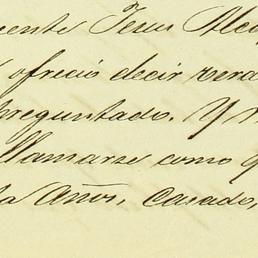 cente Jesus Alc
ofrecio decir verd
preguntado. Y
llamarse como q
ta años, Casado,